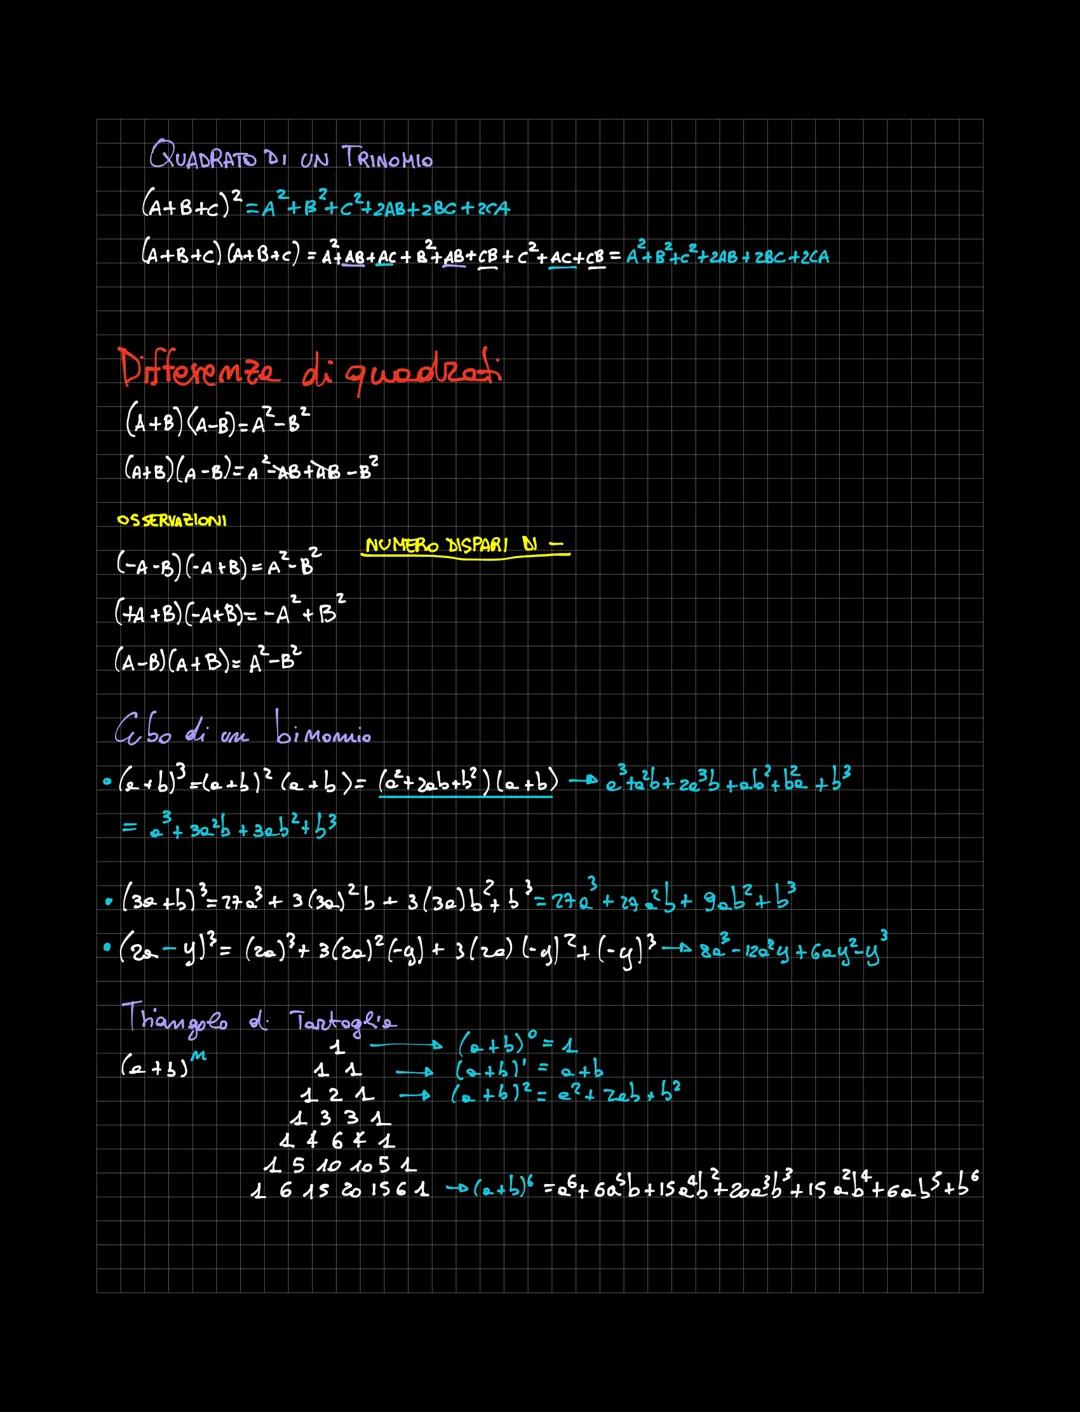 QUADRATO DI UN TRINOMIO
(A+B+C)²=A²+B²+C²+2AB+2BC+2CA
(A+B+C)(A+B+C) = A²+AB+AC+B²+AB+CB+C²+AC+CB = A²+B²+C²+2AB+2BC+2CA
Differenze di quadrati
(A+B)(A-B)=A²-B²
(A+B)(A-B)=A²-AB+AB-B²
OSSERVAZIONI
NUMERO DISPARI DI -
(-A-B)(-A+B)=A²-B²
(+A+B)(-A+B)=-A²+B²
(A-B)(A+B)=A²-B²
Cubo di un binomio
• (a+b)³=(a+b)²(a+b)=(a²+2ab+b²)(a+b) → a³+a²b+2a³b+ab²+b²a+b³
= a³+3a²b+3ab²+b³
• (3a+b)³=27a³+3(3a)²b+3(3a)b²+b³=27a³+27a²b+9ab²+b³
• (2a-y)³=(2a)³+3(2a)²(-y)+3(2a)(-y)²+(-y)³→8a³-12a²y+6ay²-y³
Triangolo di Tartaglia
1 → (a+b)⁰=1
(a+b)ⁿ 1 1 → (a+b)¹=a+b
1 2 1 → (a+b)²=a²+2ab+b²
1 3 3 1
1 4 6 4 1
1 5 10 10 5 1
1 6 15 20 15 6 1 → (a+b)⁶=a⁶+6a⁵b+15a⁴b²+20a³b³+15a²b⁴+6ab⁵+b⁶